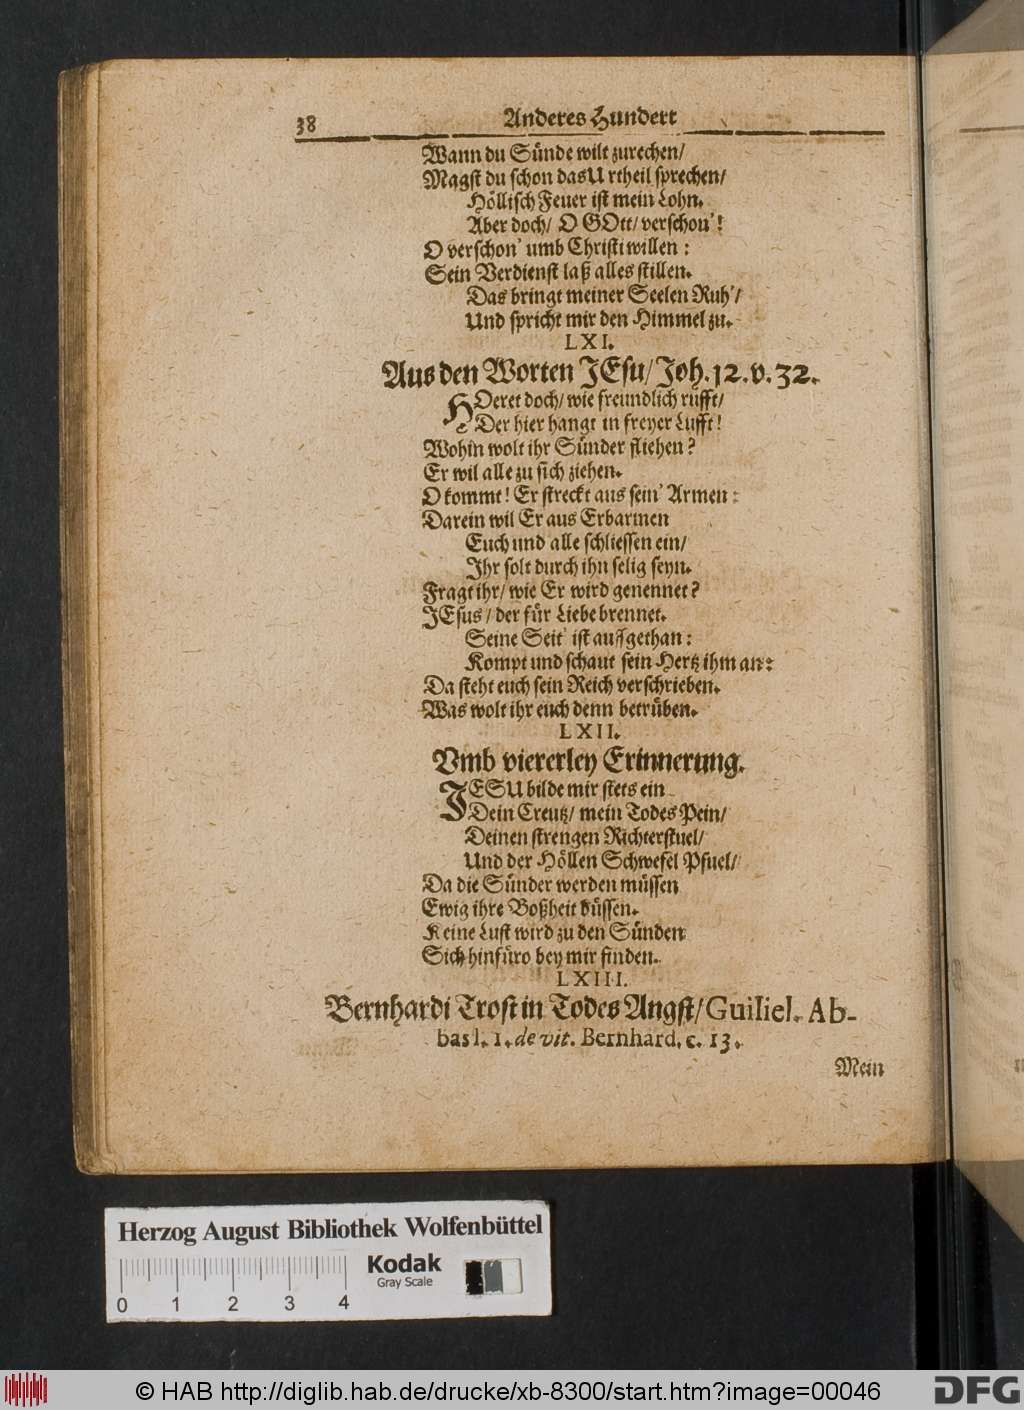 38 Anderes Hundert
Wann du Sünde wilt zurechen/
Magst du schon das Urtheil sprechen/
Höllisch Feuer ist mein Lohn.
Aber doch/ O GOtt/ verschon'!
O verschon' umb Christi willen:
Sein Verdienst laß alles stillen.
Das bringt meiner Seelen Ruh'/
Und spricht mir den Himmel zu.
LXI.
Aus den Worten JEsu/ Joh. 12. v. 32.
HOeret doch/ wie freundlich rufft/
Der hier hangt in freyer Lufft!
Wohin wolt ihr Sünder fliehen?
Er wil alle zu sich ziehen.
O kommt! Er streckt aus sein' Armen:
Darein wil Er aus Erbarmen
Euch und alle schliessen ein/
Ihr solt durch ihn selig seyn.
Fragt ihr/ wie Er wird genennet?
JEsus/ der für Liebe brennet.
Seine Seit' ist auffgethan:
Kompt und schaut sein Hertz ihm an:
Da steht euch sein Reich verschrieben.
Was wolt ihr euch denn betrüben.
LXII.
Vmb viererley Erinnerung.
JESU bilde mir stets ein
Dein Creutz/ mein Todes Pein/
Deinen strengen Richterstuel/
Und der Höllen Schwefel Pfuel/
Da die Sünder werden müssen
Ewig ihre Boßheit büssen.
Keine Lust wird zu den Sünden
Sich hinfüro bey mir finden.
LXIII.
Bernhardi Trost in Todes Angst/ Guiliel. Ab-
bas l. 1. de vit. Bernhard. c. 13.
Mein
Herzog August Bibliothek Wolfenbüttel
Kodak
Gray Scale
0 1 2 3 4
© HAB http://diglib.hab.de/drucke/xb-8300/start.htm?image=00046
DFG